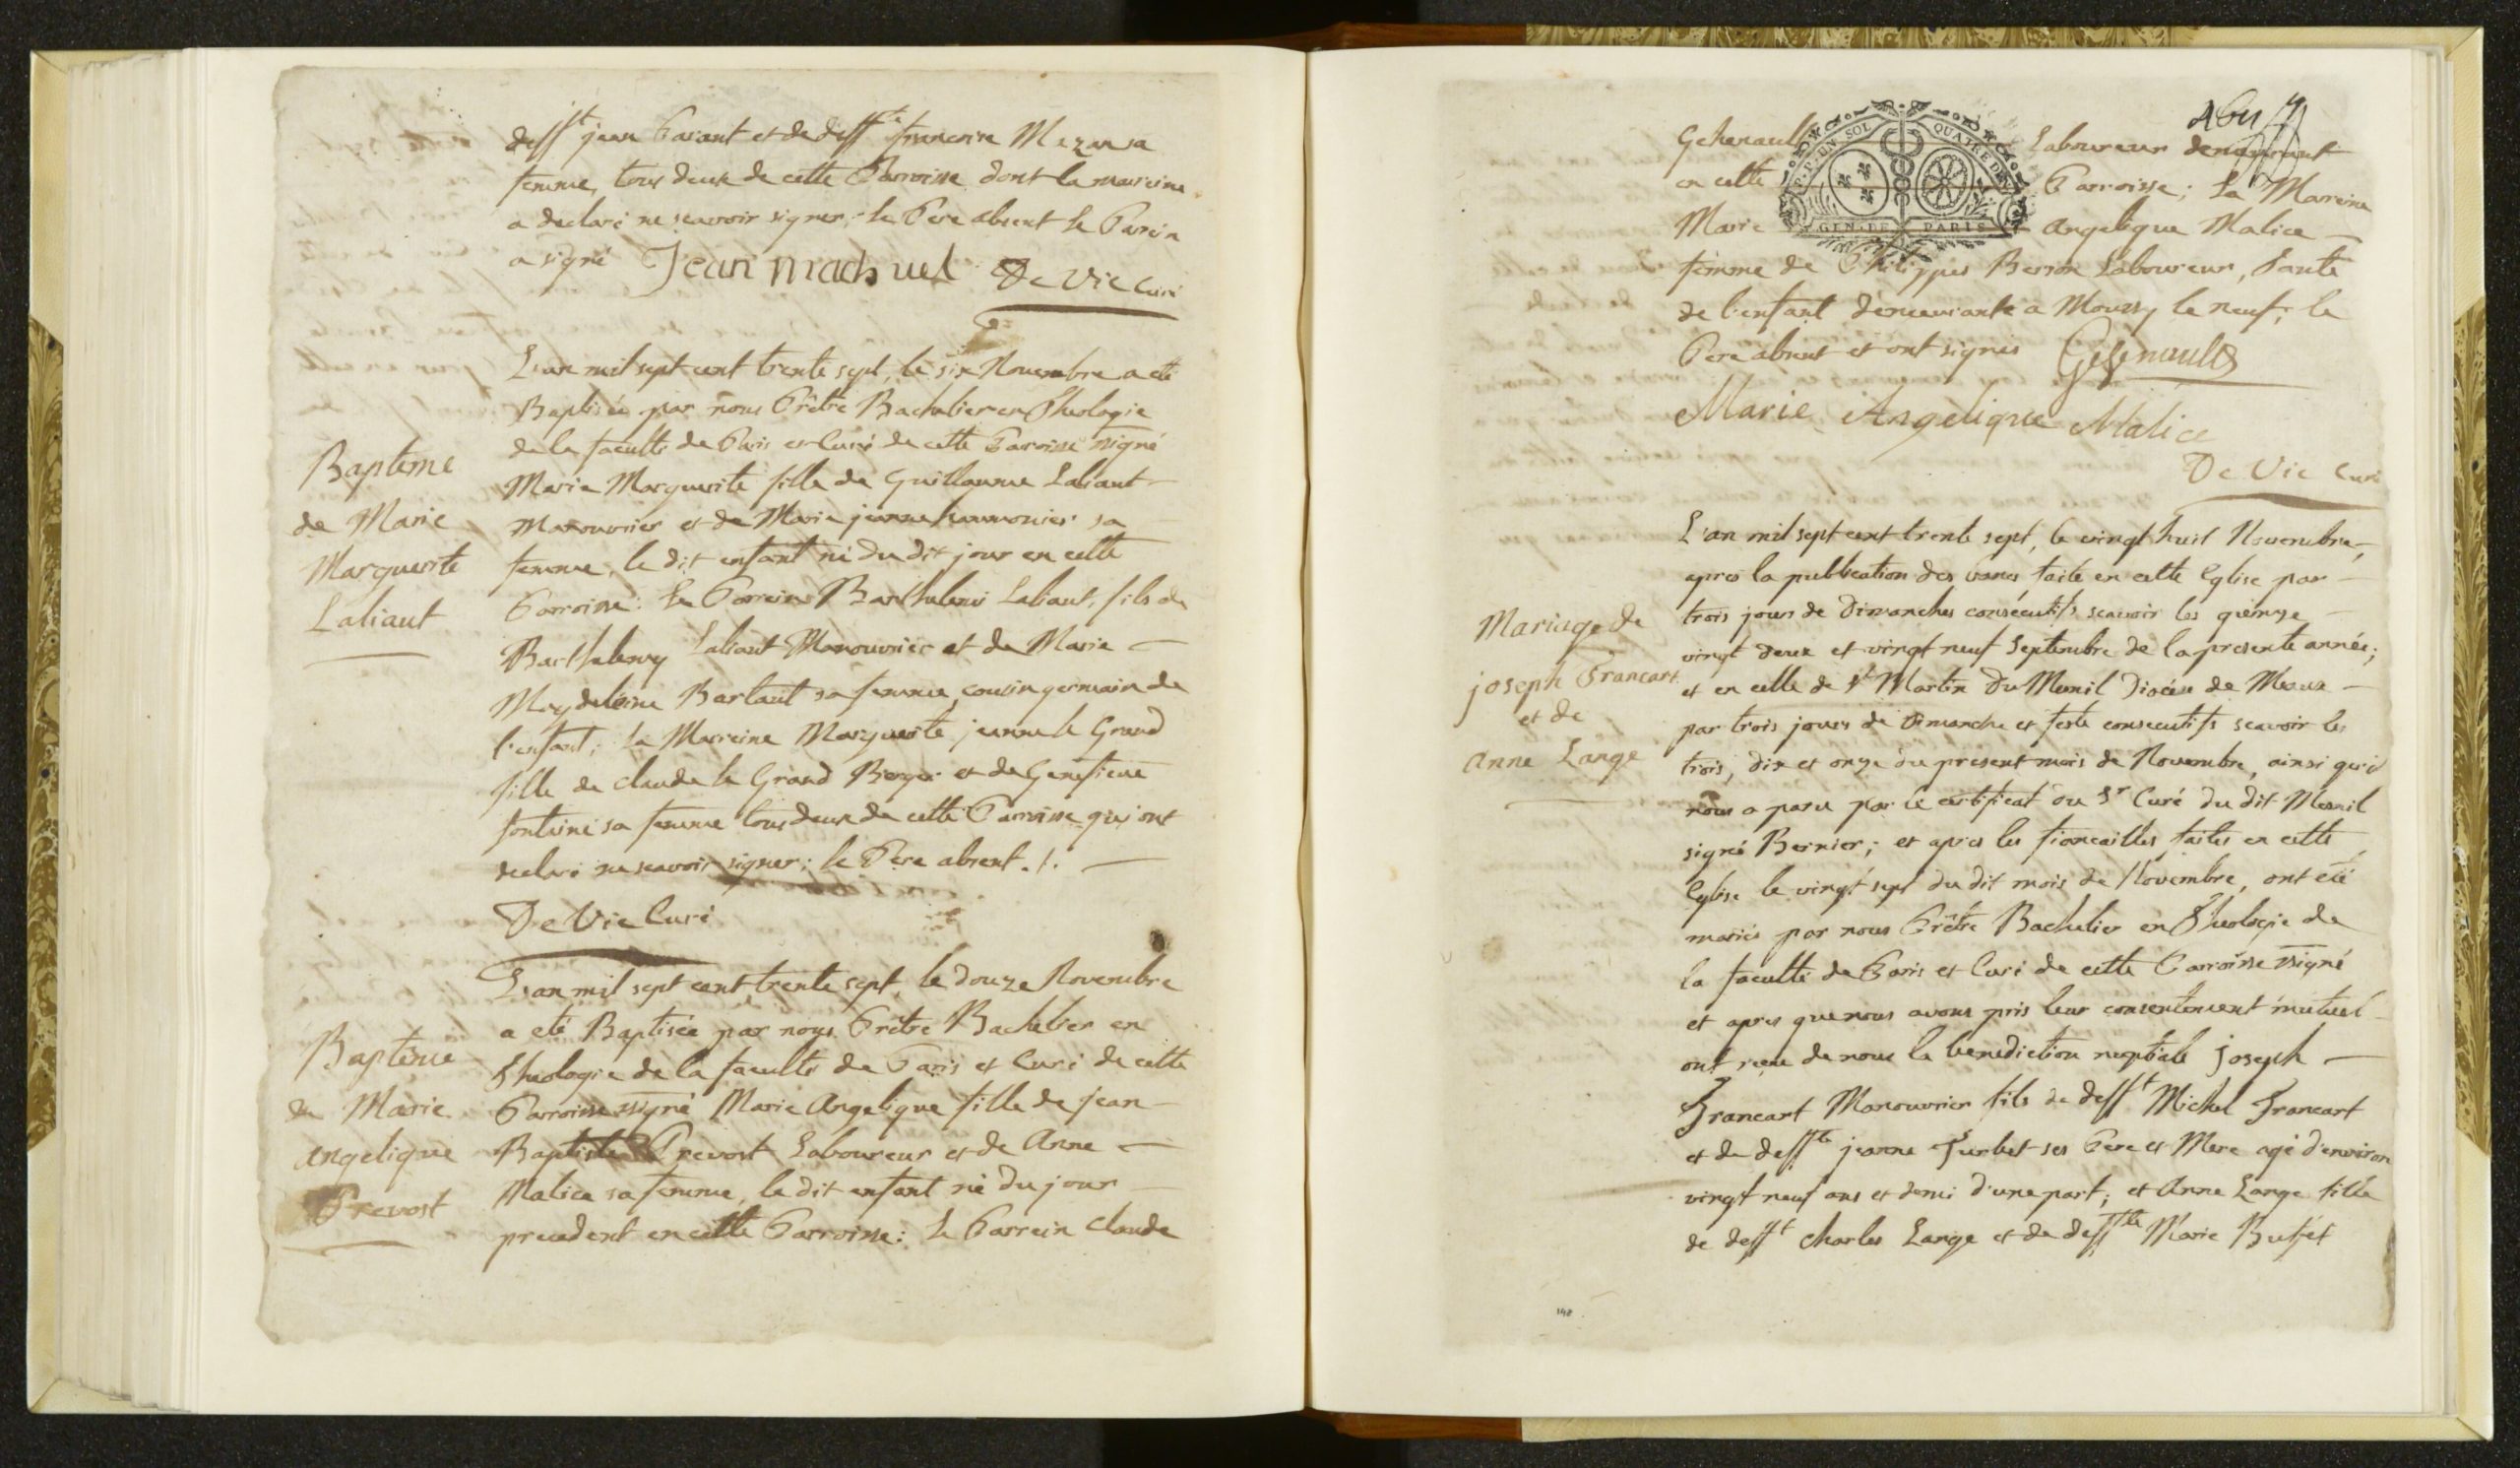 deff.t jean Parant et de deff.te francoise Mezan sa
femme, tous deux de cette Parroisse dont la mareine
a declaré ne scavoir signer; le Pere absent le Parein
a signé Jean machuel De Vie Curé
Baptême
de Marie
Marguerite
Laliaut
L'an mil sept cent trente sept, le six Novembre a eté
Baptisée par nous Prêtre Bachelier en Theologie
de la faculté de Paris et Curé de cette Paroisse ssigné
Marie Marguerite fille de Guillaume Laliaut
Manouvrier et de Marie jeanne sa
femme, le dit enfant né du dit jour en cette
Parroisse: Le Parrein Barthelemi Laliaut, fils de
Barthelemy Laliaut Manouvrier et de Marie
Magdeleine Bartaut sa femme, cousin germain de
l'enfant; la Marreine Marguerite jeanne le Grand
fille de claude le Grand Berger et de Genefieve
fontaine sa femme tous deux de cette Parroisse qui ont
declaré ne scavoir signer; le Pere absent ./.
De Vie Curé
Baptême
de Marie
Angelique
Prevost
L'an mil sept cent trente sept, le douze Novembre
a eté Baptisée par nous Prêtre Bachelier en
Theologie de la faculté de Paris et Curé de cette
Parroisse ssigné Marie Angelique fille de jean
Baptiste Prevost Laboureur et de Anne
Malice sa femme, le dit enfant né du jour
precedent en cette Parroisse: Le Parrein Claude
Gehenault Laboureur demeurant
en cette Parroisse; La Marreine
Marie Angelique Malice
femme de Philippes Berson Laboureur, Tante
de l'enfant demeurante a Moussy le neuf; le
Pere absent et ont signés Gehenault
Marie Angelique Malice
De Vie Curé
P.P. EN SOL QUATRE DEN
GEN. DE PARIS
Mariage de
joseph Francart
et de
Anne Lange
L'an mil sept cent trente sept, le vingt huit Novembre,
apres la publication des bancs faite en cette Eglise par
trois jours de Dimanches consécutifs scavoir les quinze
vingt deux et vingt neuf Septembre de la presente année;
et en celle de S.t Martin du Mesnil Diocèse de Meaux
par trois jours de Dimanche et feste consecutifs scavoir les
trois, dix et onze du present mois de Novembre, ainsi qu'il
nous a paru par le certificat du S.r Curé du dit Mesnil
signé Bernier; et apres les fiancailles faites en cette
Eglise le vingt sept du dit mois de Novembre, ont eté
mariés par nous Prêtre Bachelier en Theologie de
la faculté de Paris et Curé de cette Parroisse ssigné
et apres que nous avons pris leur consentement mutuel
ont recu de nous la benediction nuptiale joseph
Francart Manouvrier fils de deff.t Michel Francart
et de deff.te jeanne ses Pere et Mere agé d'environ
vingt neuf ans et demi d'une part; et Anne Lange fille
de deff.t charles Lange et de deff.te Marie Buffet
148